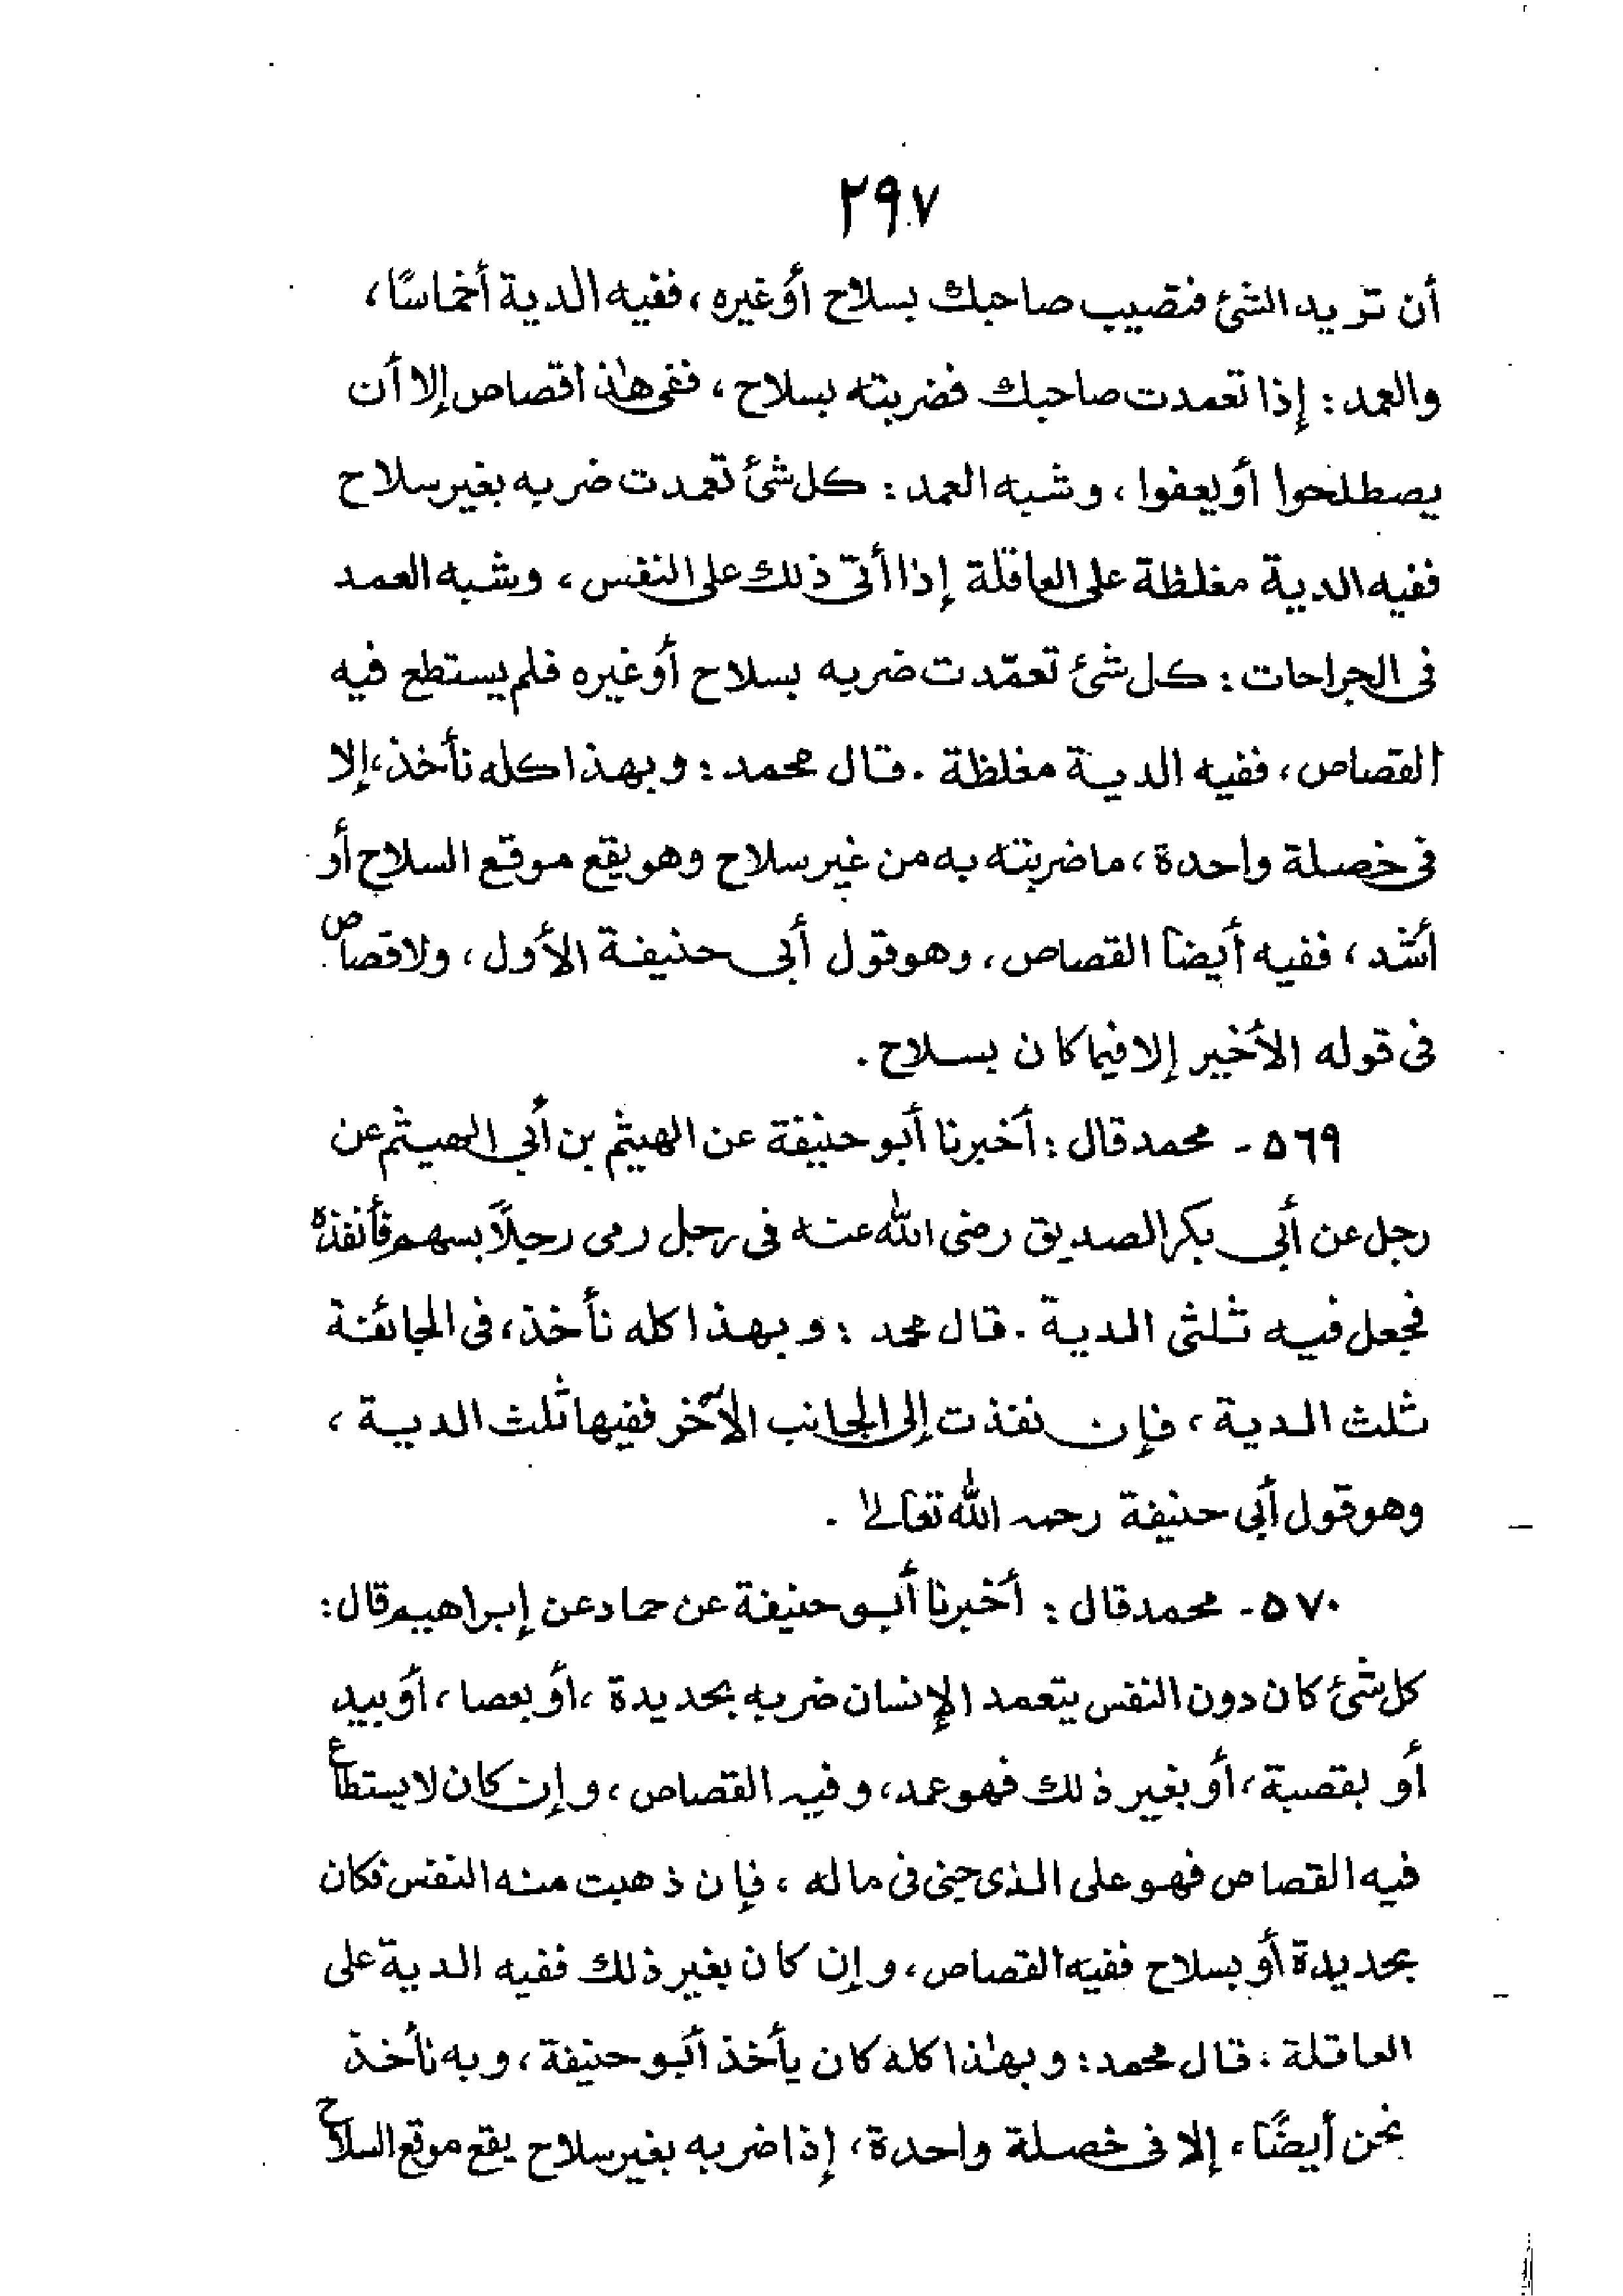 ٢٩٧
أن تريد الشئ فتصيب صاحبك بسلاح أو غيره، ففيه الدية أخماسًا،
والعمد: إذا تعمدت صاحبك فضربته بسلاح، ففى هٰذا قصاص إلا أن
يصطلحوا أو يعفوا، وشبه العمد: كل شئ تعمدت ضربه بغير سلاح
ففيه الدية مغلظة على العاقلة إذا أتى ذلك على النفس، وشبه العمد
فى الجراحات: كل شئ تعمّدت ضربه بسلاح أو غيره فلم يستطع فيه
القصاص، ففيه الدية مغلظة. قال محمد: وبهذا كله نأخذ، إلا
فى خصلة واحدة، ما ضربته به من غير سلاح وهو يقع موقع السلاح أو
أشد، ففيه أيضا القصاص، وهو قول أبى حنيفة الأول، ولا قصاص
فى قوله الأخير إلا فيما كان بسلاح.
٥٦٩- محمد قال: أخبرنا أبو حنيفة عن الهيثم بن أبي الهيثم عن
رجل عن أبى بكر الصديق رضى الله عنه فى رجل رمى رجلًا بسهم فأنفذه
فجعل فيه ثلثى الدية. قال محمد: وبهذا كله نأخذ، فى الجائفة
ثلث الدية، فإن نفذت إلى الجانب الآخر ففيها ثلث الدية،
وهو قول أبى حنيفة رحمه الله تعالى.
٥٧٠- محمد قال: أخبرنا أبو حنيفة عن حماد عن إبراهيم قال:
كل شئ كان دون النفس يتعمد الإنسان ضربه بحديدة، أو بعصا، أو بيد
أو بقصبة، أو بغير ذلك فهو عمد، وفيه القصاص، وإن كان لا يستطاع
فيه القصاص فهو على الذى جنى فى ماله، فإن ذهبت منه النفس فكان
بحديدة أو بسلاح ففيه القصاص، وإن كان بغير ذلك ففيه الدية على
العاقلة، قال محمد: وبهٰذا كله كان يأخذ أبو حنيفة، وبه نأخذ
نحن أيضًا، إلا فى خصلة واحدة، إذا ضربه بغير سلاح يقع موقع السلاح